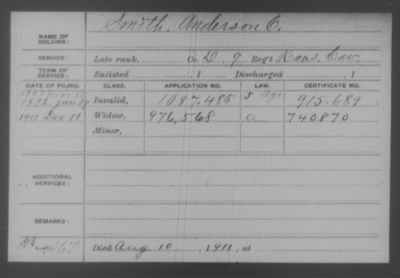 NAME OF SOLDIER: Smith, Anderson C.
SERVICE: Late rank, Co. D. 9 Reg't Kans. Cav.
TERM OF SERVICE: Enlisted , 1 Discharged , 1
DATE OF FILING. CLASS. APPLICATION NO. CERTIFICATE NO.
1892 Invalid, 1097.485 915.689
1911 Dec 11 Widow, 976,568 a 740870
Minor,
ADDITIONAL SERVICES:
REMARKS:
Died Aug 10 , 1911, at